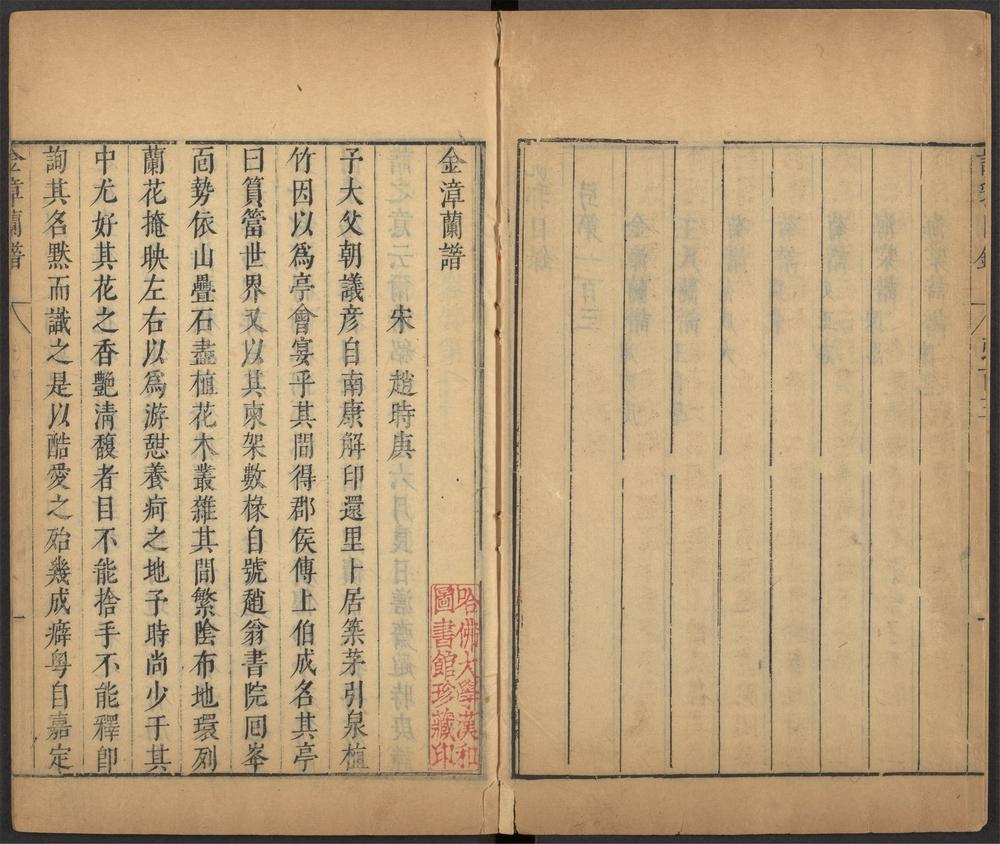 金漳蘭譜
宋 趙時庚
子大父朝議彥自南康解印還里卜居築茅引泉植
竹因以爲亭會宴乎其間得郡侯傳上伯成名其亭
曰篔簹世界又以其東架數椽自號趙翁書院囘峯
靣勢依山疊石盡植花木叢雜其間繁陰布地環列
蘭花掩映左右以爲游憇養疴之地子時尚少于其
中尤好其花之香艷清馥者目不能捨手不能釋卽
詢其名黙而識之是以酷愛之殆幾成癖粤自嘉定
金漳蘭譜
一
哈佛大學漢和
圖書館珍藏印